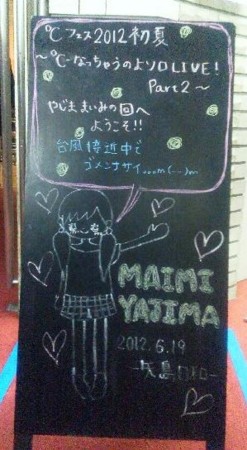 ℃フェス2012初夏
～℃-なっちゃうのよソロLIVE!
Part2～
やじままいみの回へ
ようこそ!!
台風接近中で
ゴメンナサイ...m(__)m
MAIMI
YAJIMA
2012.6.19